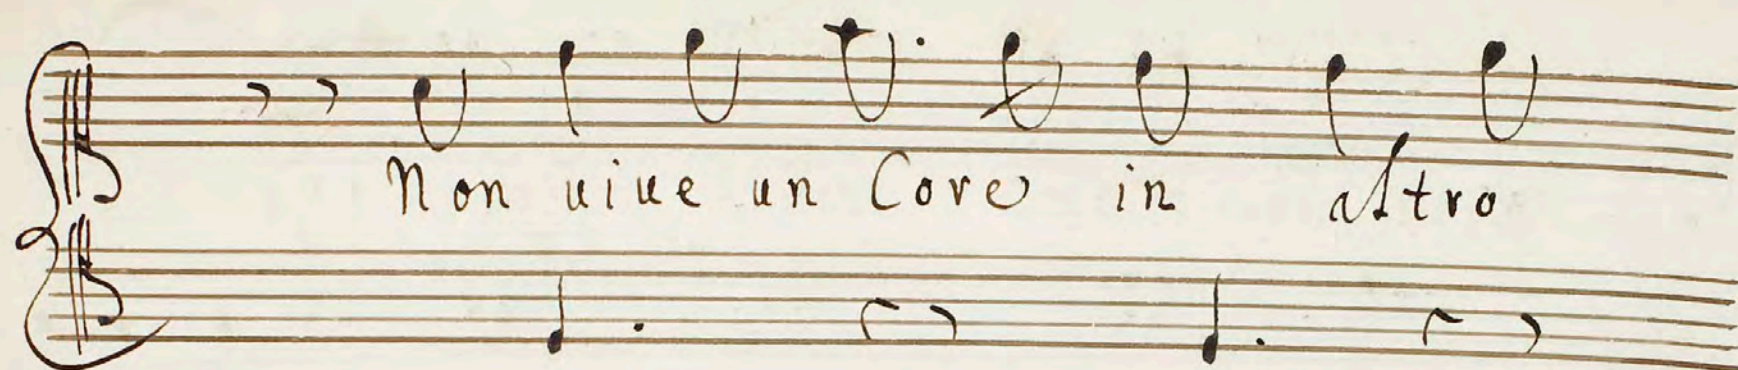 Non uiue un Core in altro